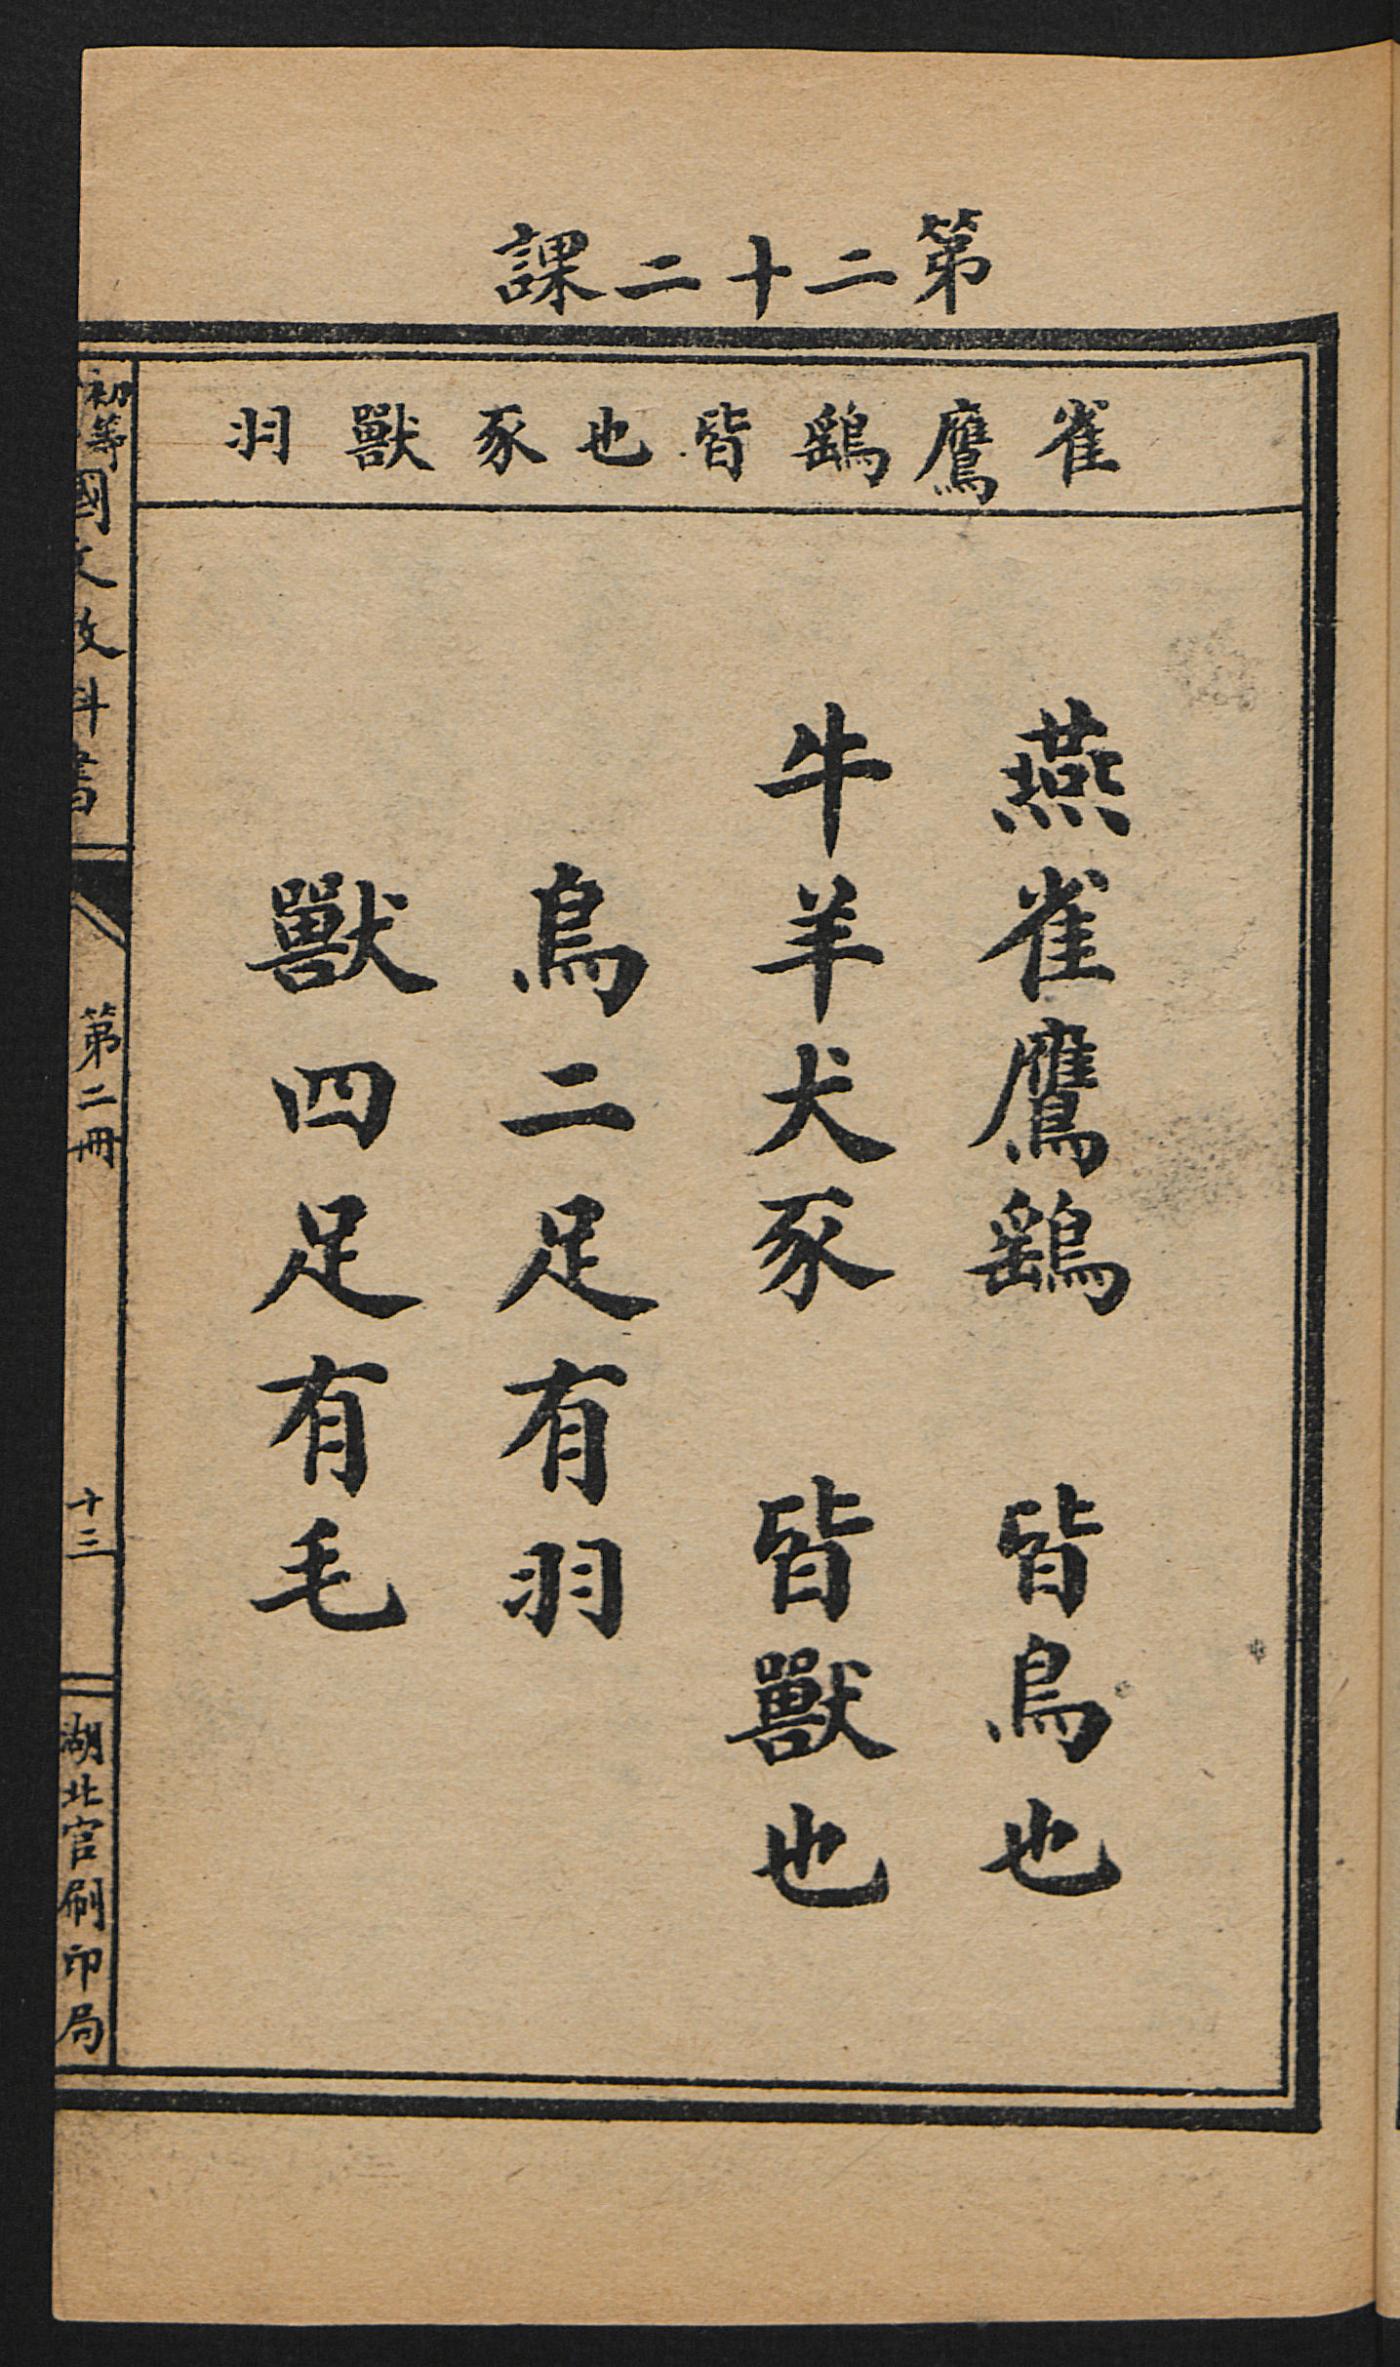 第二十二課
雀鷹鷂皆也豕獸羽
燕雀鷹鷂　皆鳥也
牛羊犬豕　皆獸也
鳥二足有羽
獸四足有毛
初等國文教科書
第二冊
十三
湖北官刷印局